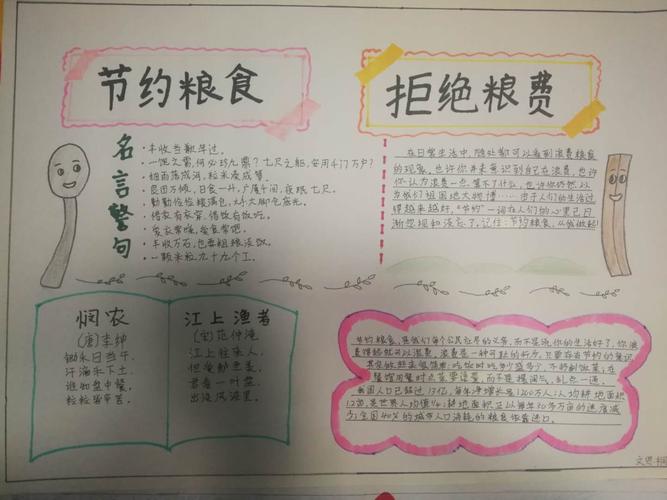 节约粮食
拒绝粮费
名言警句
·丰收当歉年过。
·一饱之需,何必八九鼎?七尺之躯,安用千门万户?
·细雨落成河,粒米凑成箩。
·良田万倾,日食一升,广厦千间,夜眠七尺。
·勤勤俭俭粮满仓,大手大脚仓底光。
·储存有衣穿,储饭有饭吃。
·丰收万石,也要粗粮淡饭。
·一颗米粒,九十九个工。
在日常生活中,随处都可以看到浪费粮食
的现象。也许你并未意识到自己在浪费,也许
你认为浪费一点算不了什么,也许你仍然以
为我们祖国地大物博……由于人们的生活过
得越来越好,"节约"一词在人们的心里已日
渐忽视和淡忘了。记住:节约粮食,从我做起!
悯农
(唐)李绅
锄禾日当午,
汗滴禾下土。
谁知盘中餐,
粒粒皆辛苦。
江上渔者
(宋)范仲淹
江上往来人,
但爱鲈鱼美。
君看一叶舟,
出没风波里。
节约粮食,是我们每个公民应尽的义务,而不是说你的生活好了,你浪
费得起就可以浪费。浪费是一种可耻的行为。只要存在节约的意识
其实做起来很简单:吃饭时吃多少盛多少,不扔剩饭菜;在
餐馆用餐时点菜要适量,而不是摆阔气,乱点一通。
我国人口已超过13亿,每年净增长是1200万人;人均耕地面积
1.2亩,是世界人均值1/4;耕地面积正以每年30多万亩的速度减
少;全国40%的城市人口消耗的粮食依靠进口。